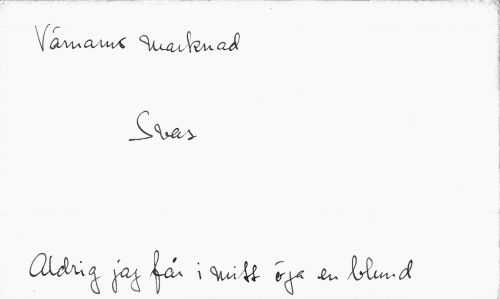 Värnamo marknad
Svar
Aldrig jag får i mitt öga en blund